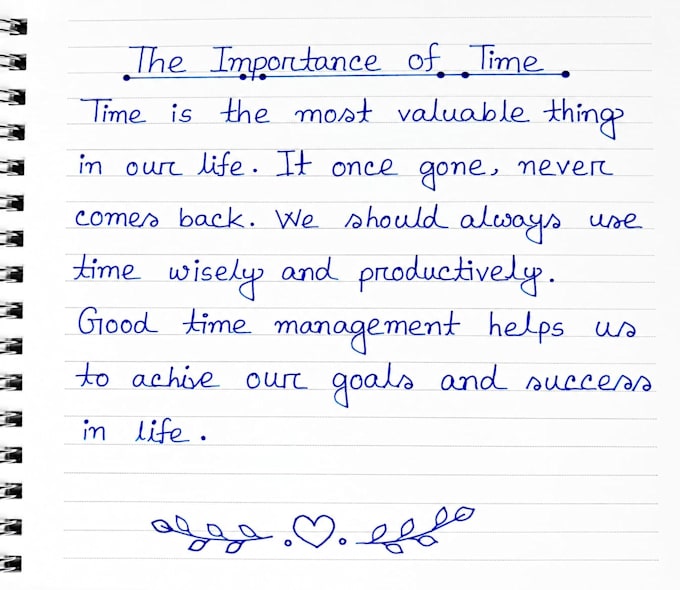 The Importance of Time
Time is the most valuable thing
in our life. It once gone, never
comes back. We should always use
time wisely and productively.
Good time management helps us
to achive our goals and success
in life.